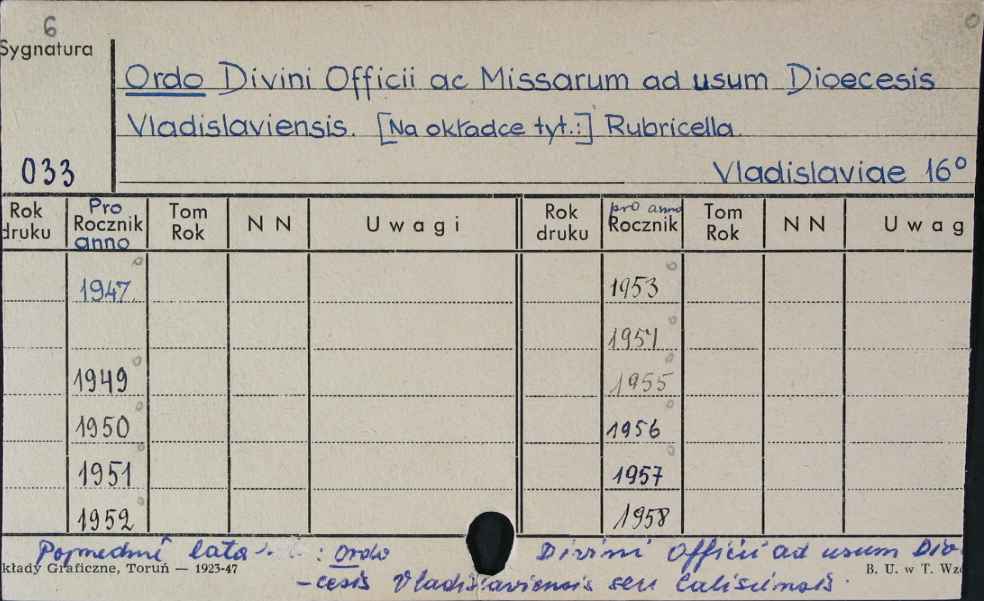 6
Sygnatura
Ordo Divini Officii ac Missarum ad usum Dioecesis
Vladislaviensis. [Na okładce tyt.:] Rubricella.
033
Vladislaviae 16°
Rok druku Pro Rocznik anno Tom Rok N N Uwagi Rok druku pro anno Rocznik Tom Rok N N Uwag
1947 1953
1954
1949 1955
1950 1956
1951 1957
1952 1958
lata : Ordo Divini Officii ad usum Dio
-cesis Vladislaviensis seu Calisiensis.
kłady Graficzne, Toruń — 1923-47 B. U. w T. Wzó